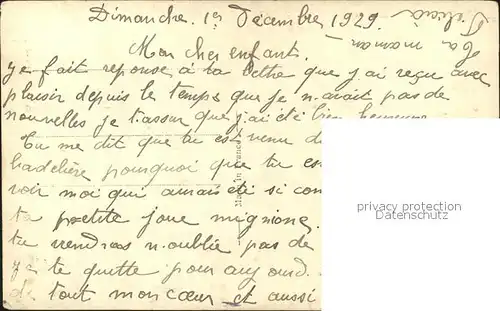 Dimanche. 1er Décembre 1929.
Ta maman
Mon cher enfant.
ye fait reponse à ta lettre que j'ai reçu avec
plaisir depuis le temps que je n'avait pas de
nouvelles je t'assur que j'ai été bien heureuse
Tu me dit que tu est venu d
pourquoi que tu es
voir moi qui amais été si con
ta petite joue mignione.
tu viendras n'oublie pas de
ye te quette pour auj ourd.
de tout mon cœur et aussi
Made in France
privacy protection
Datenschutz